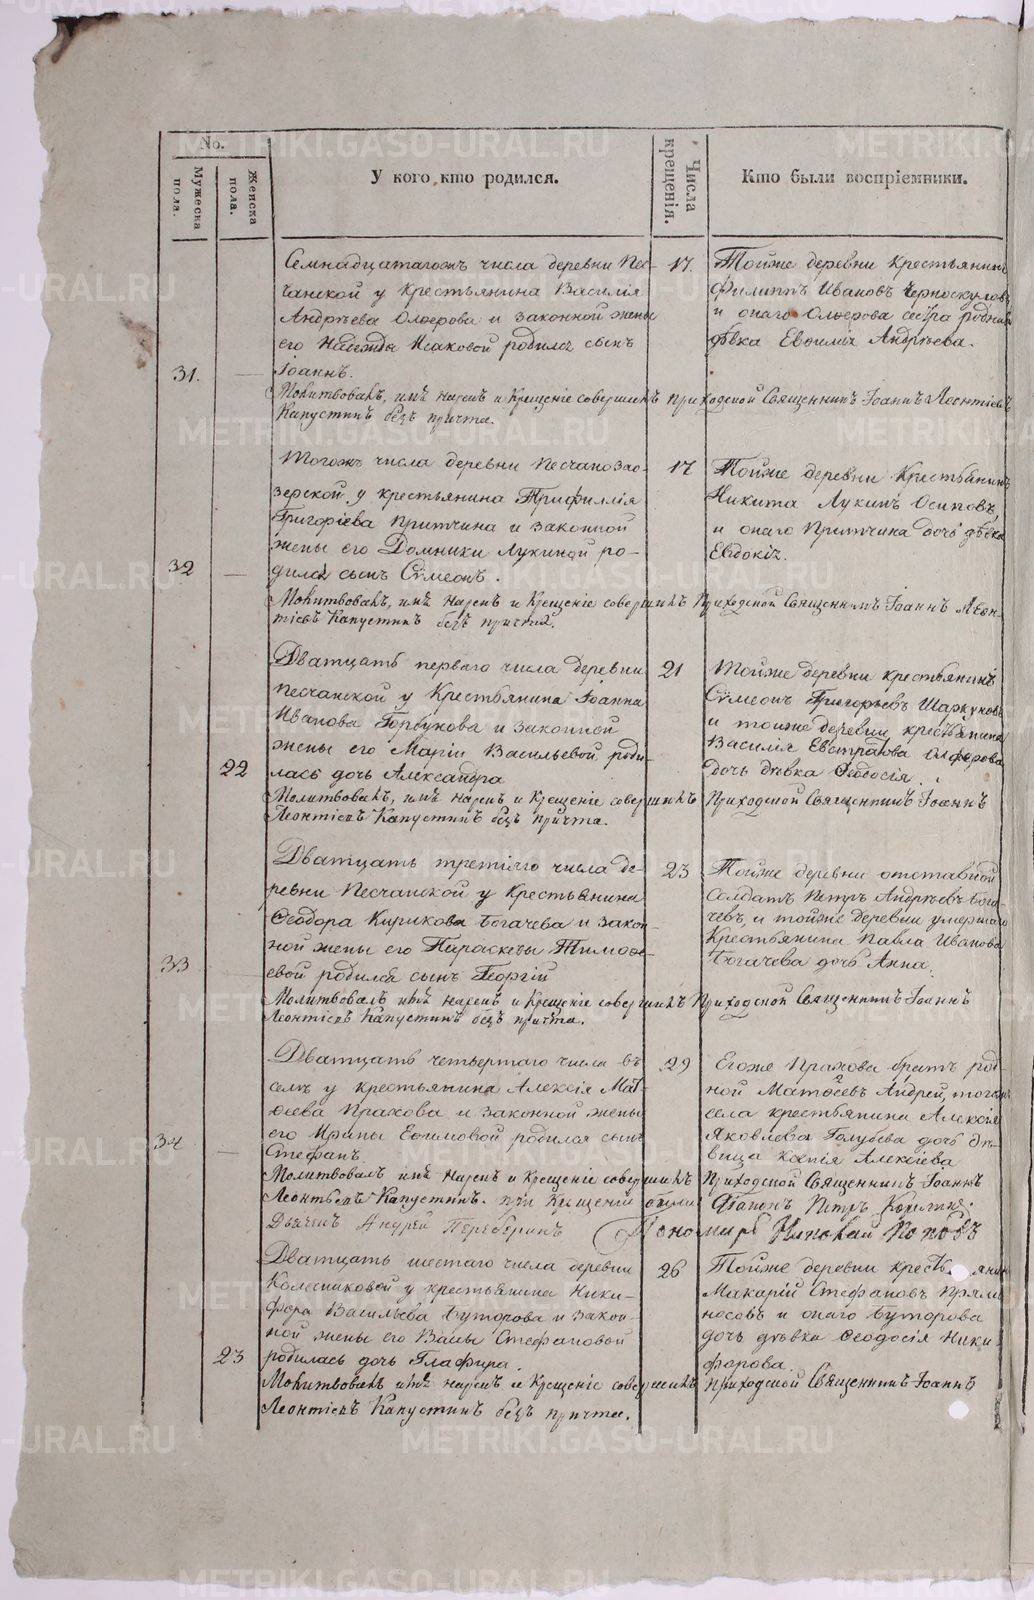 No.
Мужеска пола.
Женска пола.
У кого кто родился.
Числа крещенія.
Кто были воспріемники.
Семнадцатагожъ числа деревни Пес-
чанской у крестьянина Василія
Андрѣева Олферова и законной жены
его Исаковой родился сынъ
31. Іоаннъ.
17.
Тойже деревни крестьянинъ
Филиппъ Ивановъ Черноскуловъ
и онаго Олферова сестра родная
дѣвка Евѳимія Андрѣева.
Молитвовалъ, имя нарекъ и Крещеніе совершилъ приходской Священникъ Іоаннъ Леонтіевъ
Капустинъ безъ причта.
Тогожъ числа деревни Песчанозао-
зерской у крестьянина Трифиллія
Григоріева Притчина и законной
жены его Домники Лукиной ро-
32 дился сынъ Сѵмеонъ.
17
Тойже деревни Крестьянинъ
Никита Лукинъ Осиповъ,
и онаго Притчина дочь дѣвка
Евдокія.
Молитвовалъ, имя нарекъ и Крещеніе совершилъ Приходской Священникъ Іоаннъ Леон-
тіевъ Капустинъ безъ причта.
Дватцать перваго числа деревни
Песчанской у Крестьянина Іоанна
Иванова Горбунова и законной
жены его Маріи Васильевой роди-
22 лась дочь Александра
21
Тойже деревни крестьянинъ
Сѵмеонъ Григорьевъ Шаркуновъ
и тойже деревни крестьянина
Василія Евстратова Олферова
дочь дѣвка Ѳеодосія.
Молитвовалъ, имя нарекъ и Крещеніе совершилъ Приходской Священникъ Іоаннъ
Леонтіевъ Капустинъ безъ причта.
Дватцать третіяго числа де-
ревни Песчанской у Крестьянина
Ѳеодора Кирикова Богачева и закон-
ной жены его Параскевы Тимоѳе-
33 евой родился сынъ Георгій
23
Тойже деревни отставной
солдатъ Петръ Андрѣевъ Бога-
чевъ, и тойже деревни умершаго
Крестьянина Павла Иванова
Богачева дочь Анна.
Молитвовалъ имя нарекъ и Крещеніе совершилъ Приходской Священникъ Іоаннъ
Леонтіевъ Капустинъ безъ причта.
Дватцать четвертаго числа въ
селѣ у крестьянина Алексія Мат-
ѳеева Прахова и законной жены
его Ирины Ефимовой родился сынъ
34 Стефанъ.
29
Егоже Прахова братъ род-
ной Матѳеевъ Андрей, тогожъ
села крестьянина Алексія
Яковлева Голубева дочь дѣ-
вица Ксенія Алексіева
Молитвовалъ имя нарекъ и Крещеніе совершилъ Приходской Священникъ Іоаннъ
Леонтьевъ Капустинъ. при Крещеніи были Діаконъ Петръ
Дьячекъ Андрей Пономарь Николай Поповъ
Дватцать шестаго числа деревни
Колесниковой у крестьянина Ники-
фора Васильева Буторова и закон-
ной жены его Вассы Стефановой
23 родилась дочь Глафира.
26
Тойже деревни крестьянинъ
Макарій Стефановъ Прямо-
носовъ и онаго Буторова
дочь дѣвка Ѳеодосія Ники-
форова.
Молитвовалъ имя нарекъ и Крещеніе совершилъ приходской Священникъ Іоаннъ
Леонтіевъ Капустинъ безъ причта.
METRIKI.GASO-URAL.RU